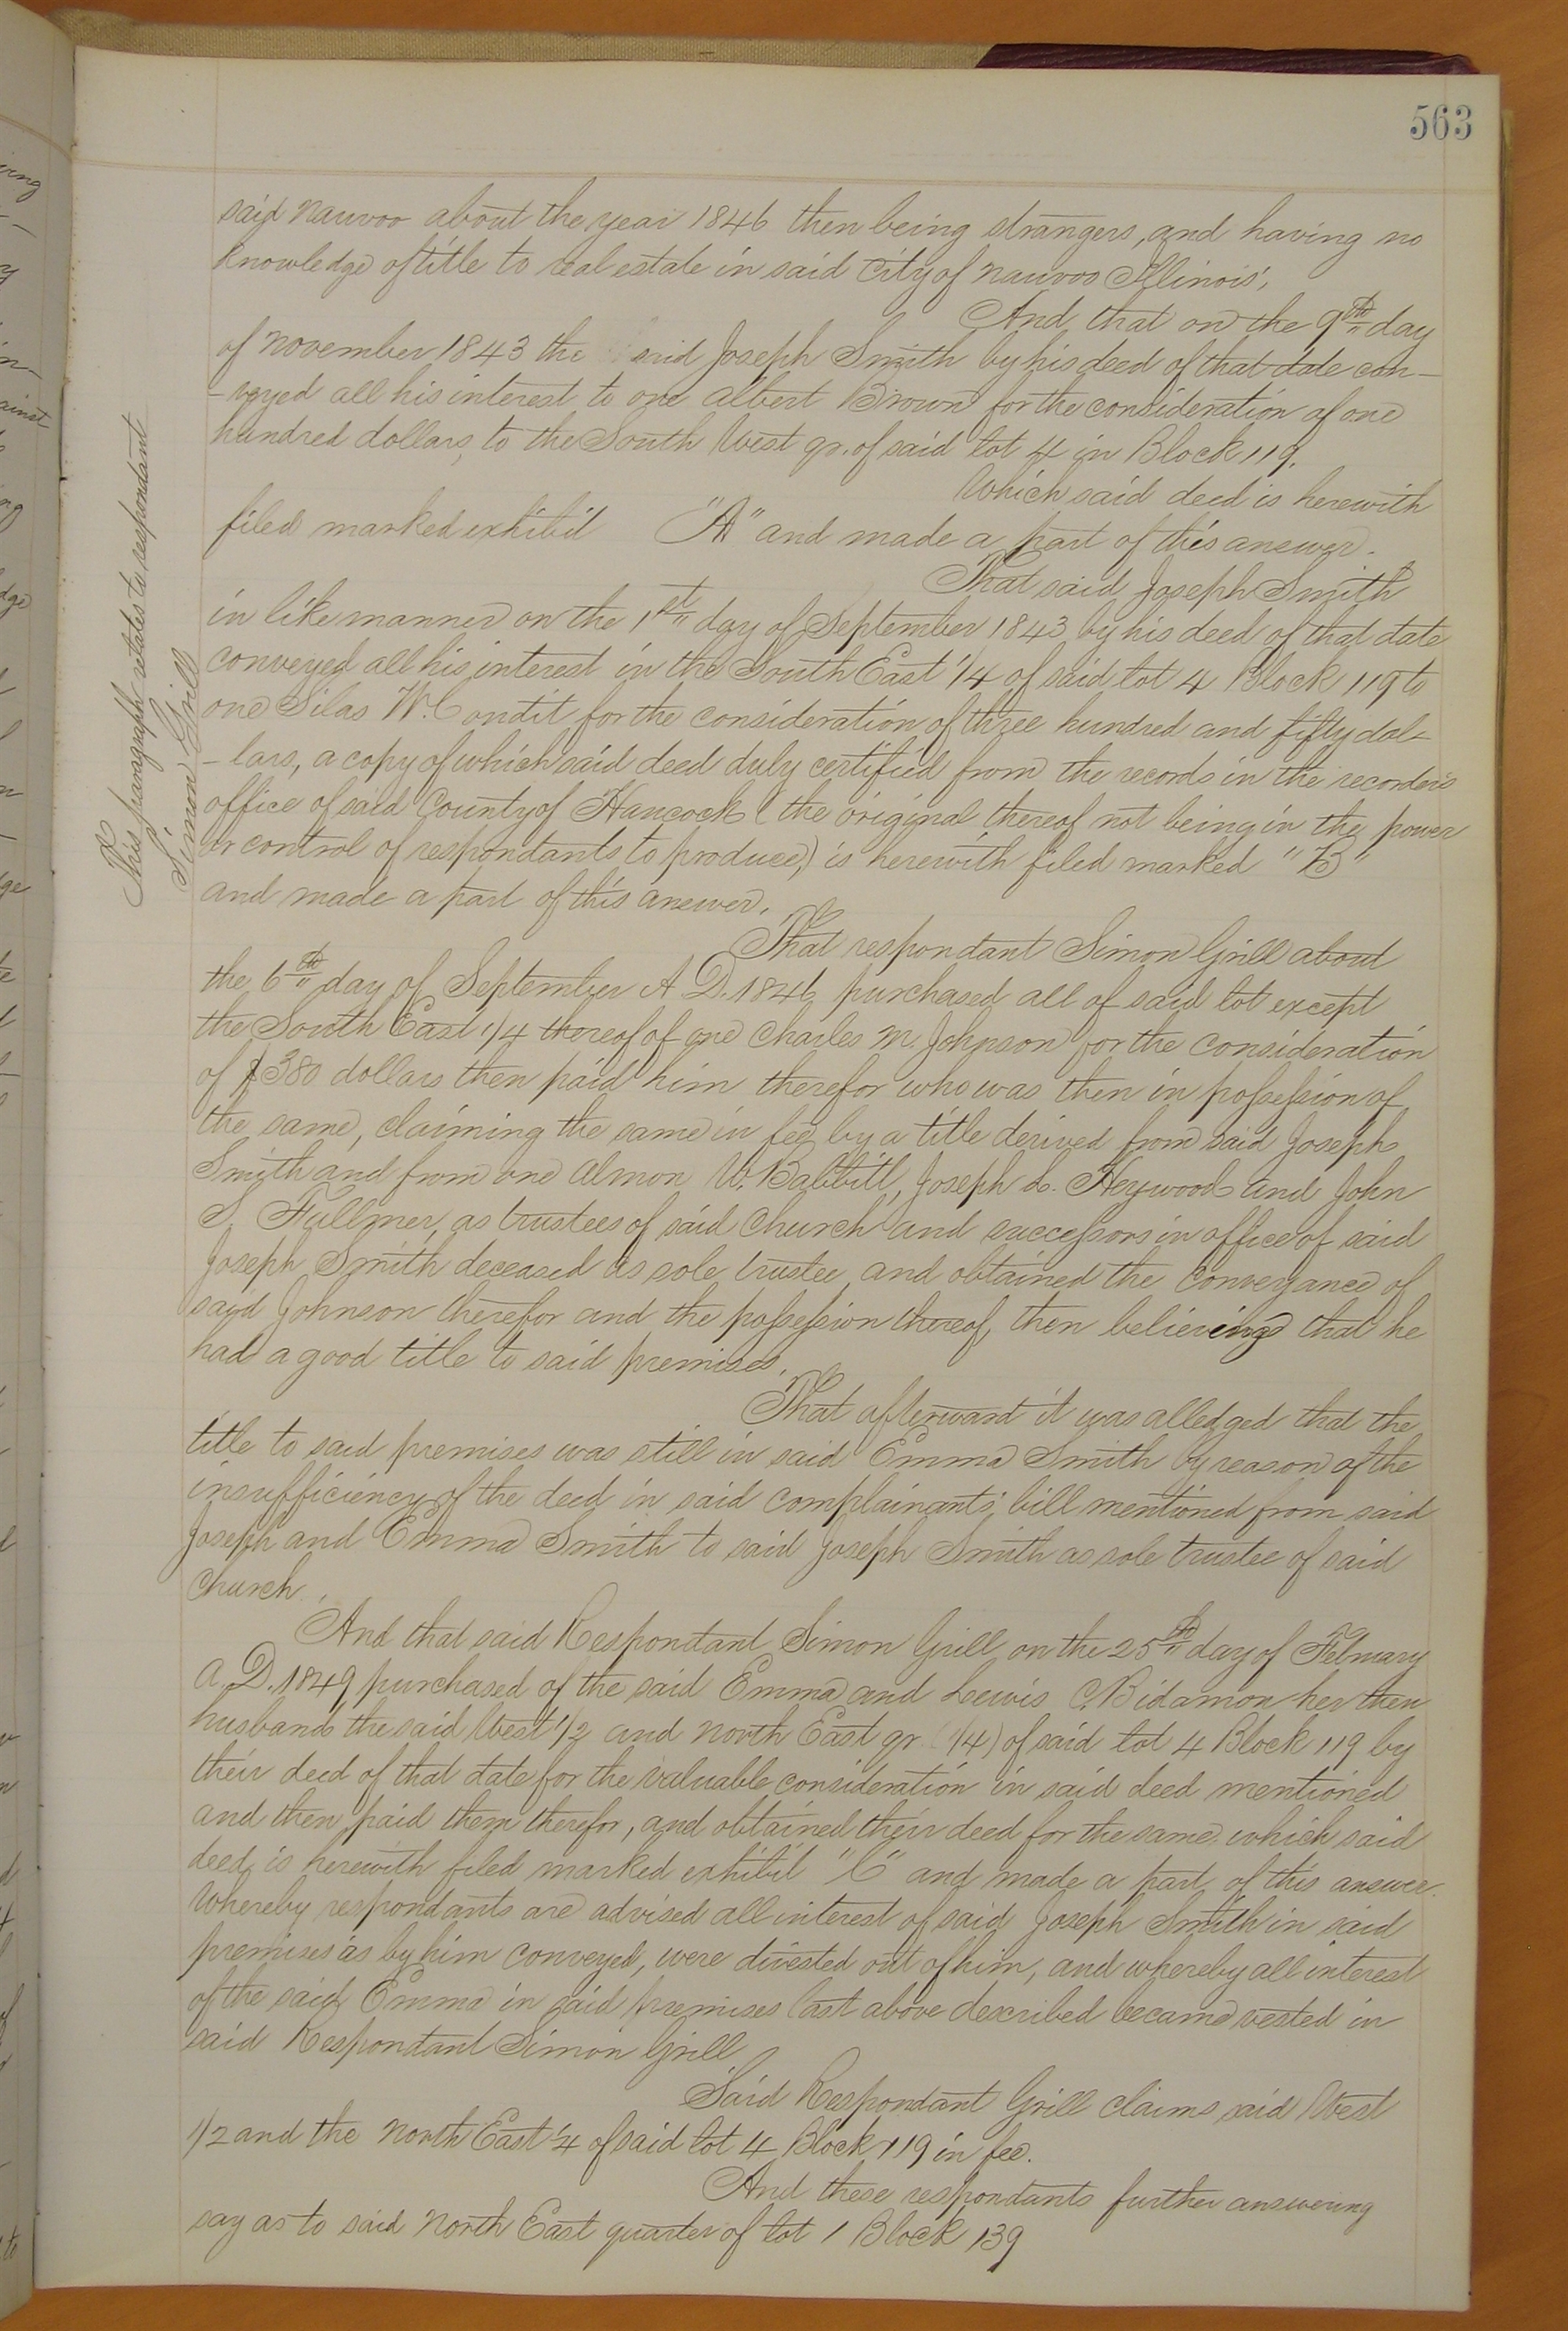 563
said nauvoo about the year 1846 then being strangers, and having no
knowledge of title to real estate in said City of nauvoo Illinois,
And that on the 9th day
of november 1843 the said Joseph Smith by his deed of that date con-
-veyed all his interest to one albert Brown for the consideration of one
hundred dollars, to the South West qr. of said lot 4 in Block 119.
Which said deed is herewith
filed marked exhibit "A" and made a part of this answer.
That said Joseph Smith
in like manner on the 1st day of September 1843 by his deed of that date
conveyed all his interest in the South East 1/4 of said lot 4 Block 119 to
one Silas W. Condit for the consideration of three hundred and fifty dol-
-lars, a copy of which said deed duly certified from the records in the recorder's
office of said County of Hancock (the original thereof not being in the power
or control of respondants to produce,) is herewith filed marked "B"
and made a part of this answer.
This paragraph relates to respondant
Simon Grill
That respondant Simon Grill about
the 6th day of September A D. 1846 purchased all of said lot except
the South East 1/4 thereof of one Charles M. Johnson for the consideration
of $380 dollars then paid him therefor who was then in possession of
the same, claiming the same in fee by a title derived from said Joseph
Smith and from one almon W. Babbitt, Joseph L. Heywood and John
S. Fullmer, as trustees of said Church and successors in office of said
Joseph Smith deceased as sole trustee and obtained the conveyance of
said Johnson therefor and the possession thereof, then believing that he
had a good title to said premises.
That afterward it was alledged that the
title to said premises was still in said Emma Smith by reason of the
insufficiency of the deed in said complainants bill mentioned from said
Joseph and Emma Smith to said Joseph Smith as sole trustee of said
Church.
And that said Respondant Simon Grill on the 25th day of February
A. D. 1849 purchased of the said Emma and Lewis C. Bidamon her then
husband the said West 1/2 and north East qr (1/4) of said lot 4 Block 119 by
their deed of that date for the valuable consideration in said deed mentioned
and then paid them therefor, and obtained their deed for the same. which said
deed is herewith filed marked exhibit "C" and made a part of this answer.
Whereby respondants are advised all interest of said Joseph Smith in said
premises as by him conveyed, were divested out of him, and whereby all interest
of the said Emma in said premises last above described became vested in
said Respondant Simon Grill
Said Respondant Grill claims said West
1/2 and the north East 1/4 of said lot 4 Block 119 in fee.
And these respondants further answering
say as to said north East quarter of lot 1 Block 139